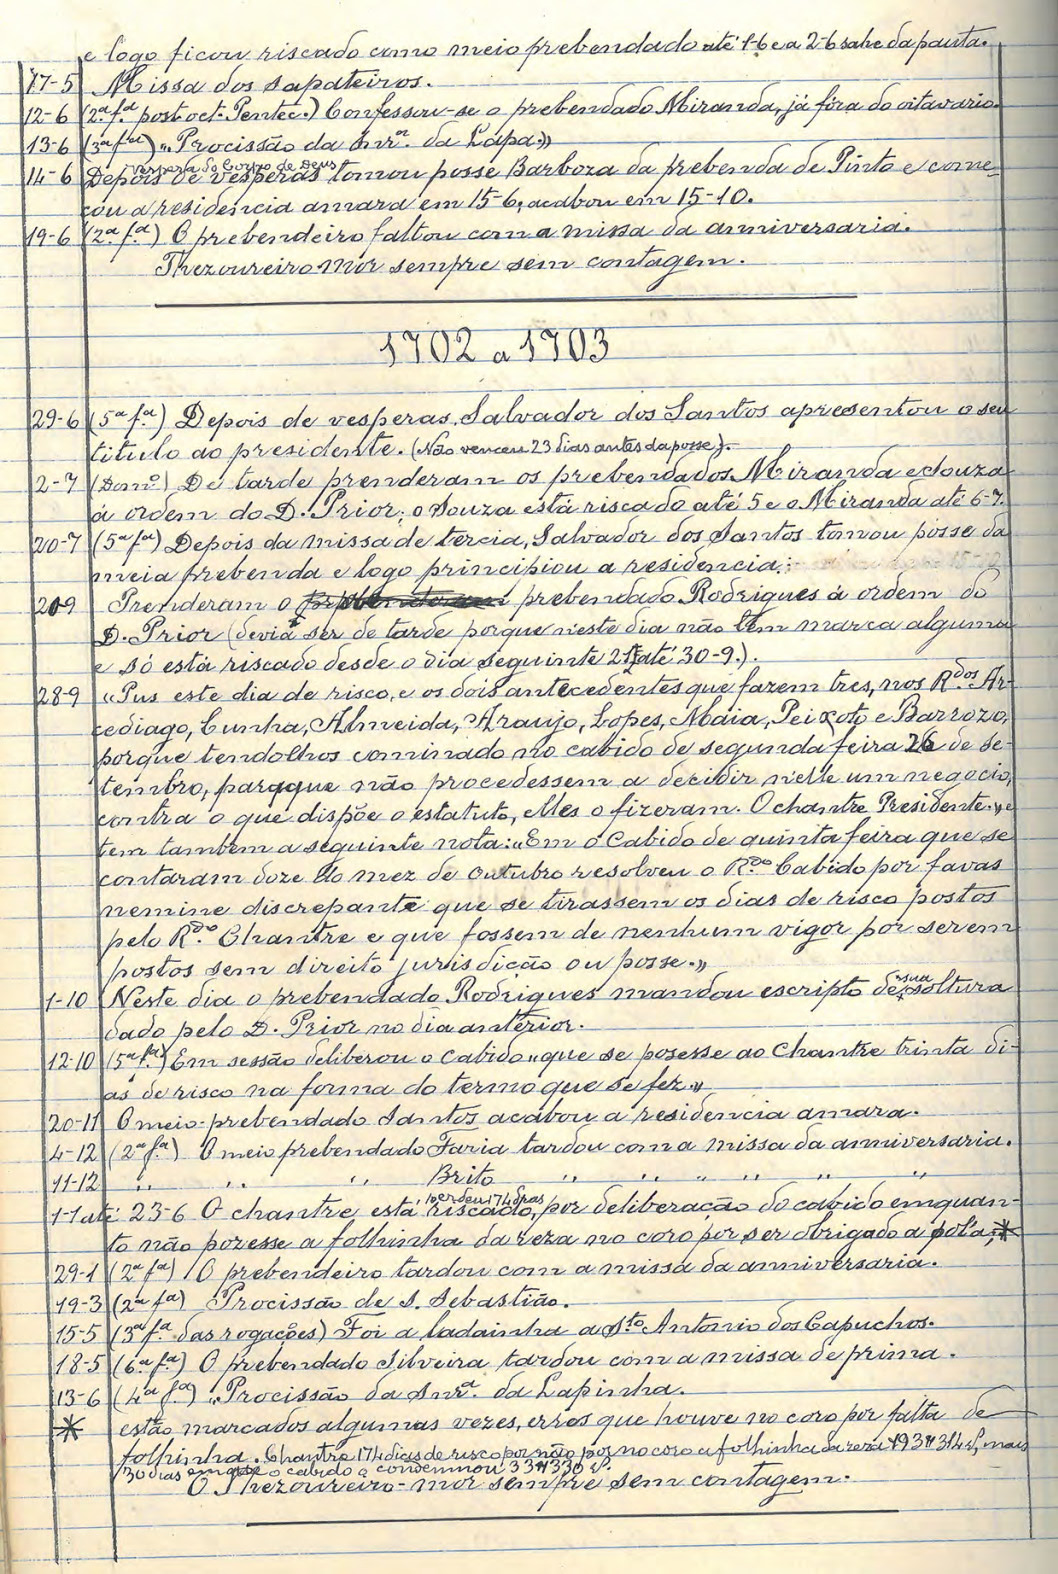 e logo ficou riscado como meio prebendado até 1-6 e a 2-6 sahe da pauta.
17-5 Missa dos sapateiros.
12-6 (2ª fª post oct. Pentec.) Confessou-se o prebendado Miranda, já fóra do oitavario.
13-6 (3ª fª) „Procissão da Snrª. da Lapa.”
vespera do Corpo de Deus
14-6 Depois de vesperas tomou posse Barboza da prebenda de Pinto e come-
çou a residencia amara em 15-6, acabou em 15-10.
19-6 (2ª. fª.) O prebendeiro faltou com a missa da anniversaria.
Thezoureiro Mór sempre sem contagem.
1702 a 1703
29-6 (5ª fª.) Depois de vesperas, Salvador dos Santos apresentou o seu
titulo ao presidente. (Não venceu 23 dias antes da posse).
2-7 (Domº.) De tarde prenderam os prebendados Miranda e Souza
á ordem do D. Prior; o Souza está riscado até 5 e o Miranda até 6-7.
20-7 (5ª fª) Depois da missa de tercia, Salvador dos Santos tomou posse da
meia prebenda e logo principiou a residencia.
20-9 Prenderam o prebendado Rodrigues á ordem do
D. Prior (devia ser de tarde porque n'este dia não tem marca alguma
e só está riscado desde o dia seguinte 21 até 30-9.).
28-9 „Pus este dia de risco, e os dois antecedentes que fazem tres, nos R.dos Ar-
cediago, Cunha, Almeida, Araujo, Lopes, Maia, Peixoto e Barrozo,
porque tendolhos cominado no cabido de segunda feira 26 de Se-
tembro, paraque não procedessem a decidir n'elle um negocio,
contra o que dispõe o estatuto, elles o fizeram. O chantre Presidente.„ e
tem tambem a seguinte nota: „Em o Cabido de quinta feira que se
contaram doze do mez de Outubro resolveu o R.do Cabido por favas
nemine discrepante que se tirassem os dias de risco postos
pelo R.do Chantre e que fossem de nenhum vigor por serem
postos sem direito jurisdicção ou posse.„
1-10 Neste dia o prebendado Rodrigues mandou escripto de sua soltura
dado pelo D. Prior no dia anterior.
12-10 (5ª fª.) Em sessão deliberou o Cabido „que se posesse ao Chantre trinta di-
as de risco na forma do termo que se fez.„
20-11 O meio-prebendado Santos acabou a residencia amara.
4-12 (2ª fª.) O meio prebendado Faria tardou com a missa da anniversaria.
11-12 „ „ „ Brito „ „ „ „ „
perdeu 174 dias
1-1 até 23-6 O chantre está riscado, por deliberação do cabido emquan-
to não pozesse a folhinha da reza no coro por ser obrigado a pol'a; *
29-1 (2ª fª) O prebendeiro tardou com a missa da anniversaria.
19-3 (2ª fª) Procissão de S. Sebastião.
15-5 (3ª fª. das rogações) Foi a ladainha a Sto Antonio dos Capuchos.
18-5 (6ª fª.) O prebendado Silveira tardou com a missa de prima.
13-6 (4ª fª.) „Procissão da Snrª. da Lapinha.
* estão marcados algumas vezes, erros que houve no coro por falta de
folhinha. Chantre 174 dias de risco por não por no coro a folhinha da reza 193$314 rs, mais
30 dias em que o cabido o condemnou 33$330 rs.
O Thezoureiro-mor sempre sem contagem.